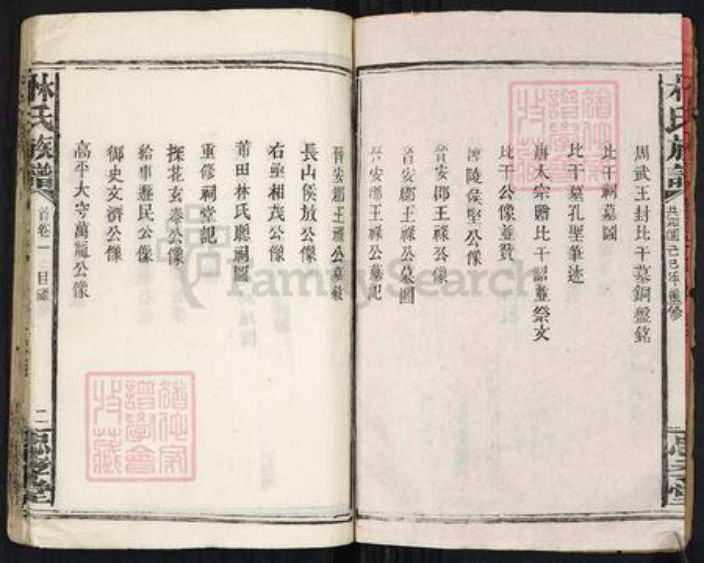 林氏族譜
共和國己巳年重修
周武王封比干墓銅盤銘
比干祠墓圖
比干墓孔聖筆迹
唐太宗贈比干詔並祭文
比干公像並贊
博陵侯堅公像
晉安郡王祿公像
晉安郡王祿公墓圖
晉安郡王祿公墓記
晉安郡王祿公墓
長山侯放公像
右丞相茂公像
莆田林氏聽祠圖
重修祠堂記
探花玄泰公像
給事遯民公像
御史文濟公像
高平太守萬寵公像
林氏族譜
首卷一
目錄
二
FamilySearch